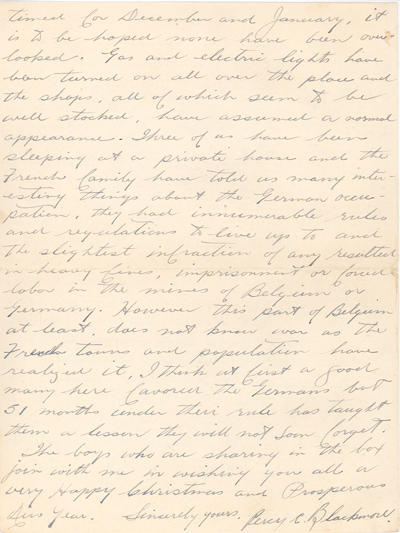 timed for December and January, it
is to be hoped none have been over-
looked. Gas and electric lights have
been turned on all over the place and
the shops, all of which seem to be
well stocked, have assumed a normal
appearance. Three of us have been
sleeping at a private house and the
French family have told us many inter-
esting things about the German occu-
pation, they had innumerable rules
and regulations to live up to and
the slightest infraction of any resulted
in heavy fines, imprisonment or forced
labor in the mines of Belgium or
Germany. However this part of Belgium
at least, does not know war as the
French towns and population have
realized it, I think at first a good
many here favored the Germans but
51 months under their rule has taught
them a lesson they will not soon forget.
The boys who are sharing in the box
join with me in wishing you all a
very Happy Christmas and Prosperous
New Year. Sincerely yours. Percy C. Blackmore.